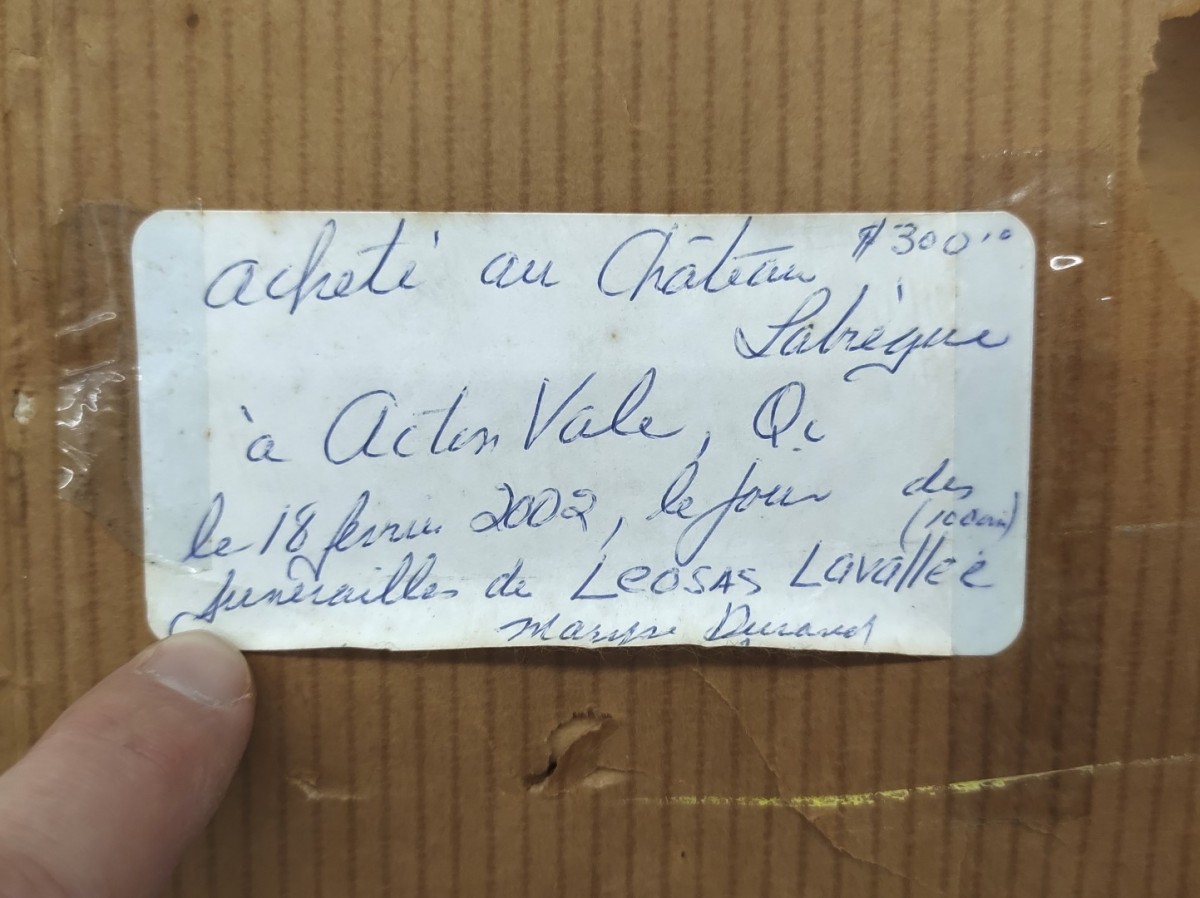 acheté au Château $300.00
Labrèque
à Acton Vale, Qc
le 18 février 2002, le jour des
(100 ans)
funérailles de LEOSAS Lavallée
Maryse Durand